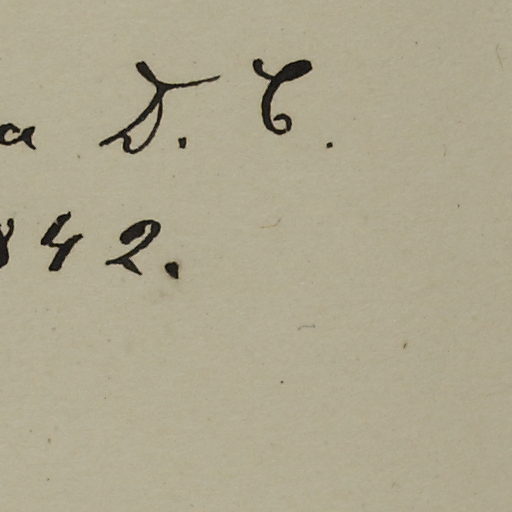 a D. C.
842.